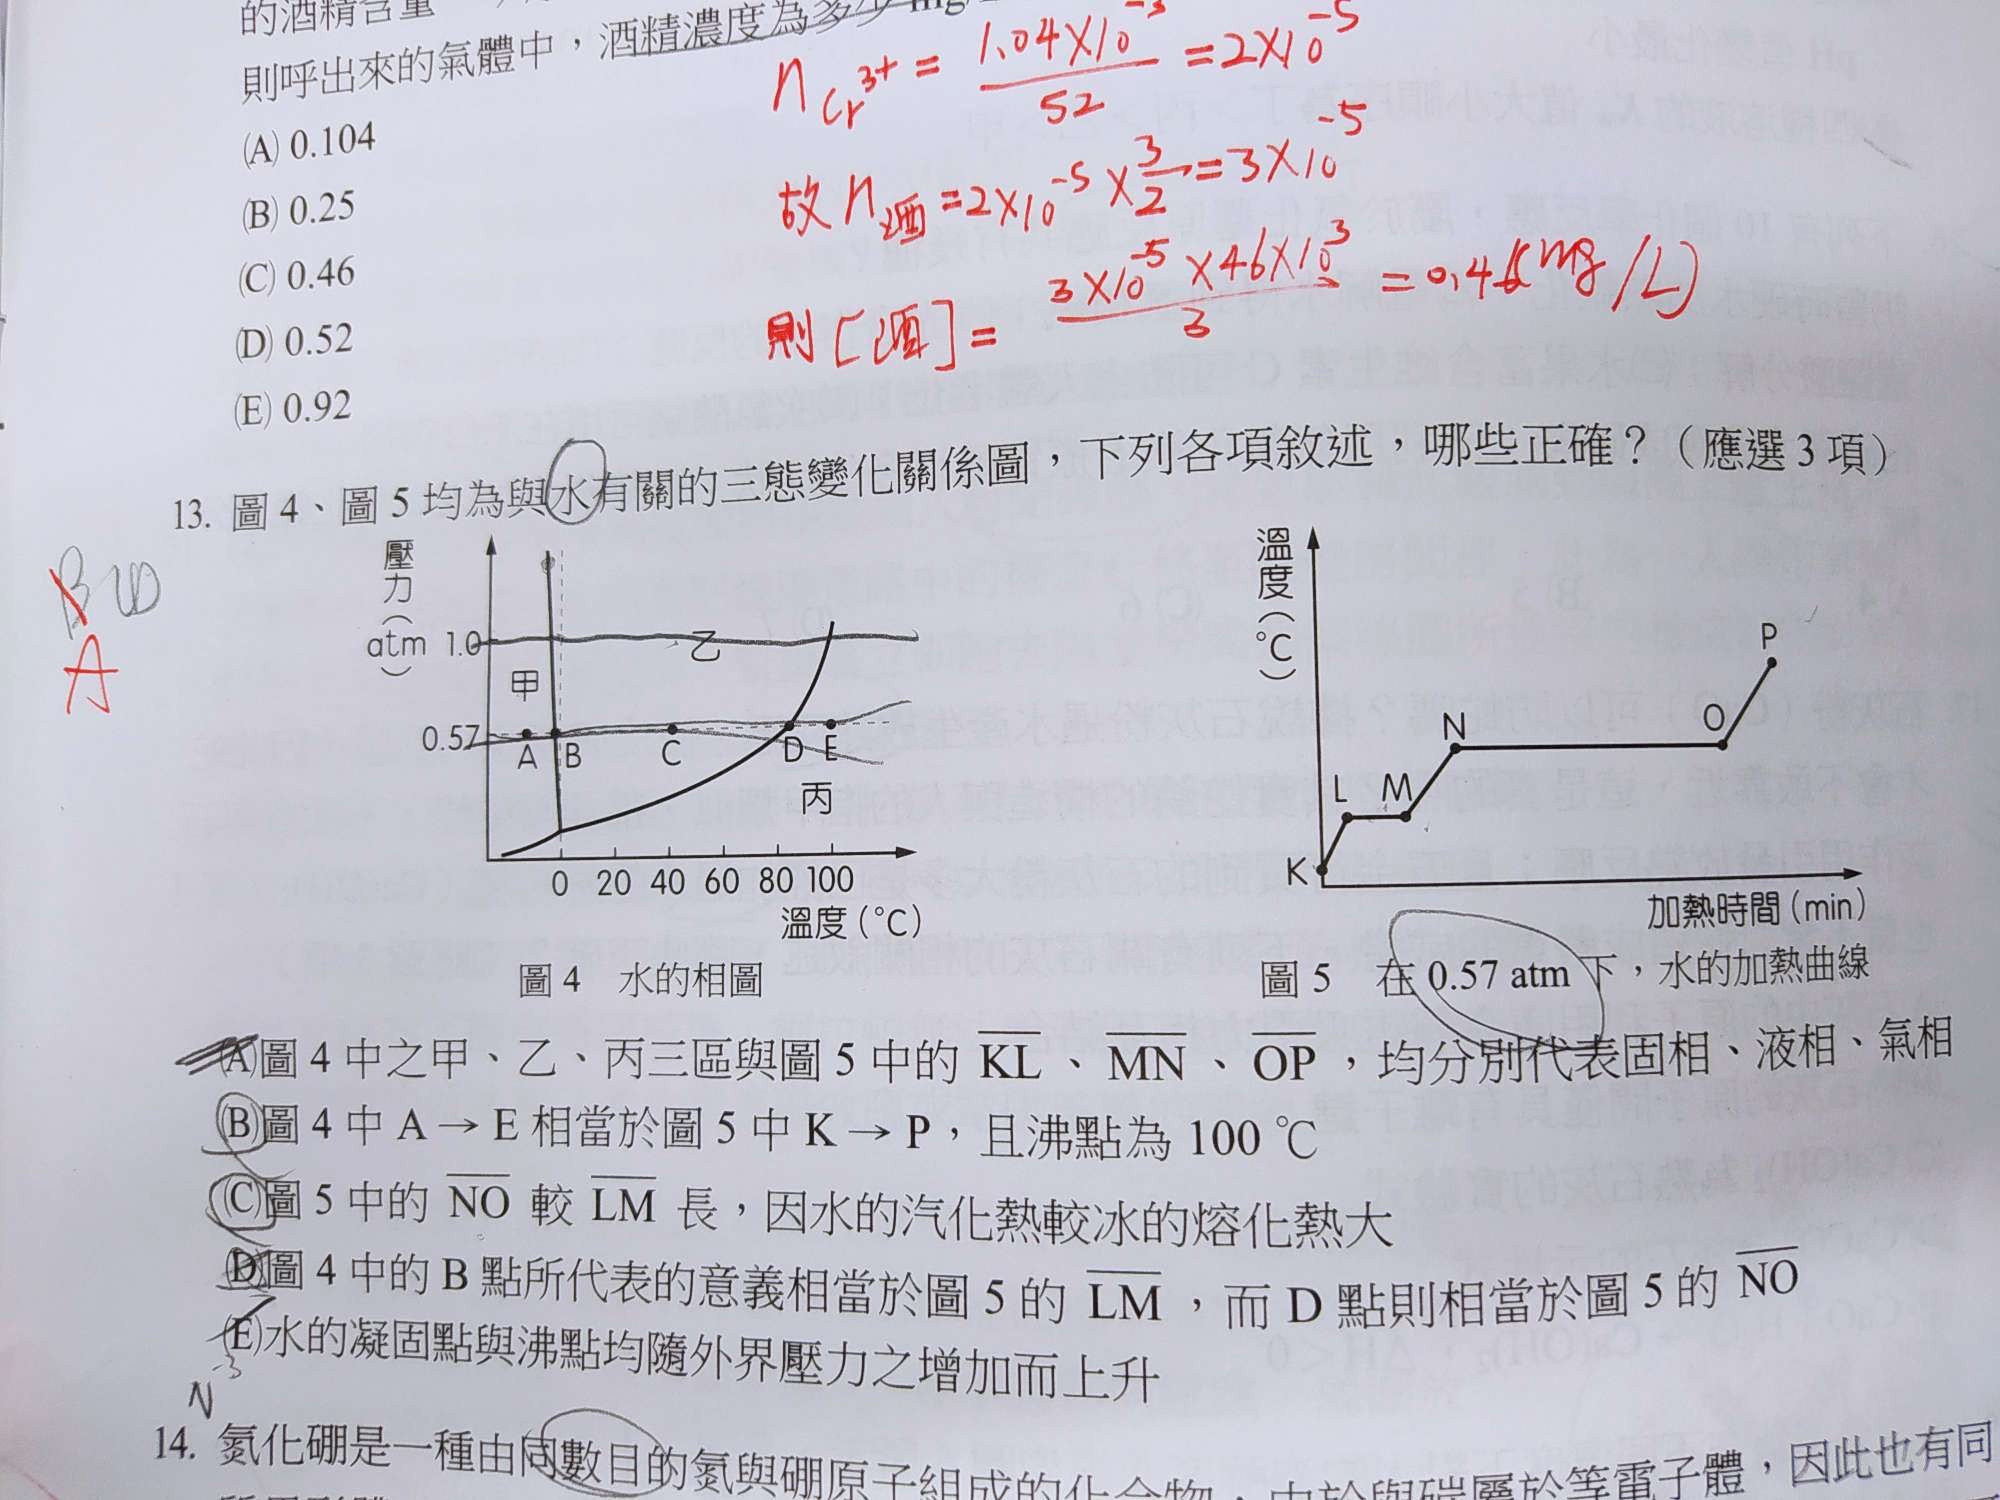 的酒精含量
則呼出來的氣體中，酒精濃度為多少 mg/
(A) 0.104
(B) 0.25
(C) 0.46
(D) 0.52
(E) 0.92
n Cr³⁺ = 1.04×10⁻³ / 52 = 2×10⁻⁵
故 n酒 = 2×10⁻⁵ × 3/2 = 3×10⁻⁵
則 [酒] = 3×10⁻⁵ × 46×10³ / 3 = 0.46 mg/L)
13. 圖 4、圖 5 均為與水有關的三態變化關係圖，下列各項敘述，哪些正確？（應選 3 項）
B CD
A
壓力(atm)
1.0
0.57
甲
乙
丙
A B C D E
0 20 40 60 80 100
溫度(°C)
圖 4 水的相圖
溫度(°C)
K L M N O P
加熱時間(min)
圖 5 在 0.57 atm 下，水的加熱曲線
(A)圖 4 中之甲、乙、丙三區與圖 5 中的 KL、MN、OP，均分別代表固相、液相、氣相
(B)圖 4 中 A → E 相當於圖 5 中 K → P，且沸點為 100 ℃
(C)圖 5 中的 NO 較 LM 長，因水的汽化熱較冰的熔化熱大
(D)圖 4 中的 B 點所代表的意義相當於圖 5 的 LM，而 D 點則相當於圖 5 的 NO
(E)水的凝固點與沸點均隨外界壓力之增加而上升
N⁻³
14. 氮化硼是一種由同數目的氮與硼原子組成的化合物，由於與碳屬於等電子體，因此也有同